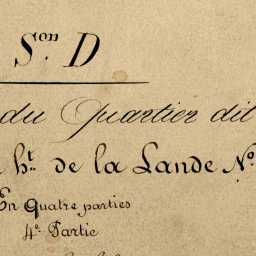 Son D
du Quartier dit
ht. de la Lande No
En Quatre parties
4e Partie